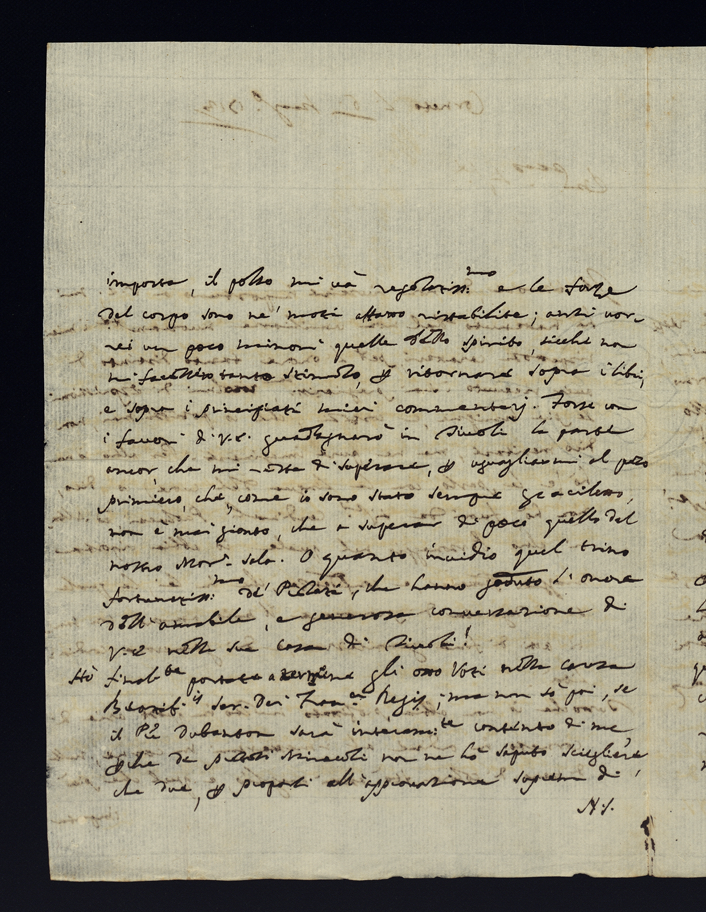 importa, il polso mi và regolatiss.mo e le forze
del corpo sono ne' moti affatto ristabilite; anzi vor-
rei un poco minori quelle dello spirito, sicché non
mi tanto stimolo, ritornare sopra i libri,
e sopra i principiati miei commentarj. Forse con
i favori di V.E. guadagnarò in Tivoli la parte
ancor, che mi resta di superare, uguagliarmi al peso
primiero, che, come io sono stato sempre gracilesco,
non è mai gionto, che a superar di poco quello del
nostro Mon.r Sala. O quanto invidio quel trino
fortunatiss.mo de' Prelati, che hanno goduto l'onore
dell'amabile, e generosa conversazione di
V.E. nella sua casa di Tivoli!
Hò finalte portato a termine gli otto Voti nella causa
Beatif.is Ser. Dei Fran.ci Regis; ma non sò poi, se
il P.re Dubanton sarà interam.te contento di me,
che da miracoli non ne hò saputo sciegliere,
che due, proporli all'approvazione suprema di
N.S.